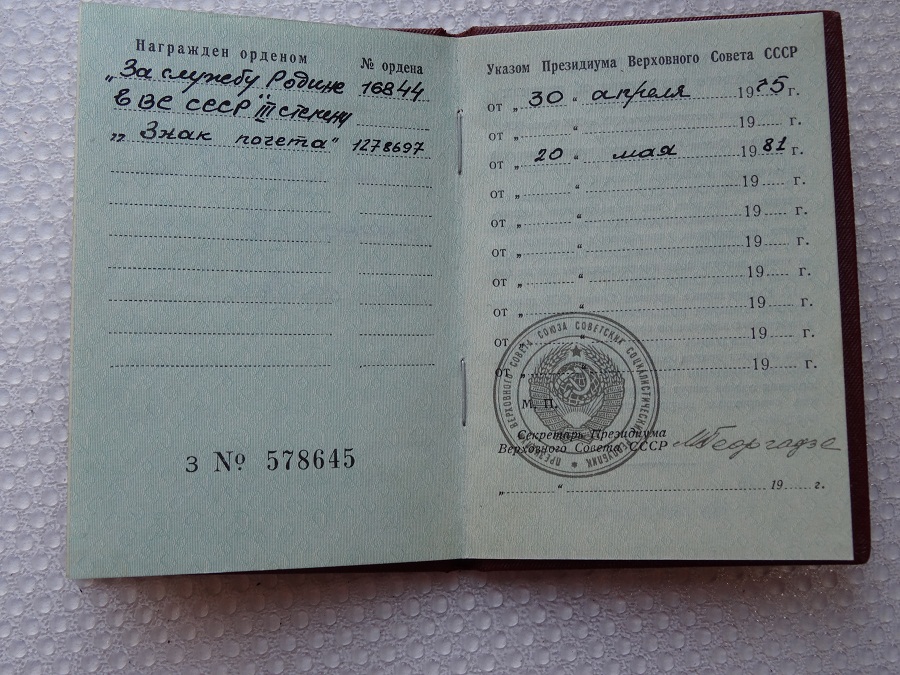 Награжден орденом
№ ордена
„За службу Родине 16844
в ВС СССР" III степени
„Знак почета" 1278697
З № 578645
Указом Президиума Верховного Совета СССР
от „30“ апреля 1975 г.
от „ “ 19 г.
от „20“ мая 1981 г.
от „ “ 19 г.
от „ “ 19 г.
от „ “ 19 г.
от „ “ 19 г.
от „ “ 19 г.
от „ “ 19 г.
от „ “ 19 г.
ПРЕЗИДИУМ ВЕРХОВНОГО СОВЕТА СОЮЗА СОВЕТСКИХ СОЦИАЛИСТИЧЕСКИХ РЕСПУБЛИК
М. П.
Секретарь Президиума
Верховного Совета СССР МГеоргадзе
„ “ 19 г.